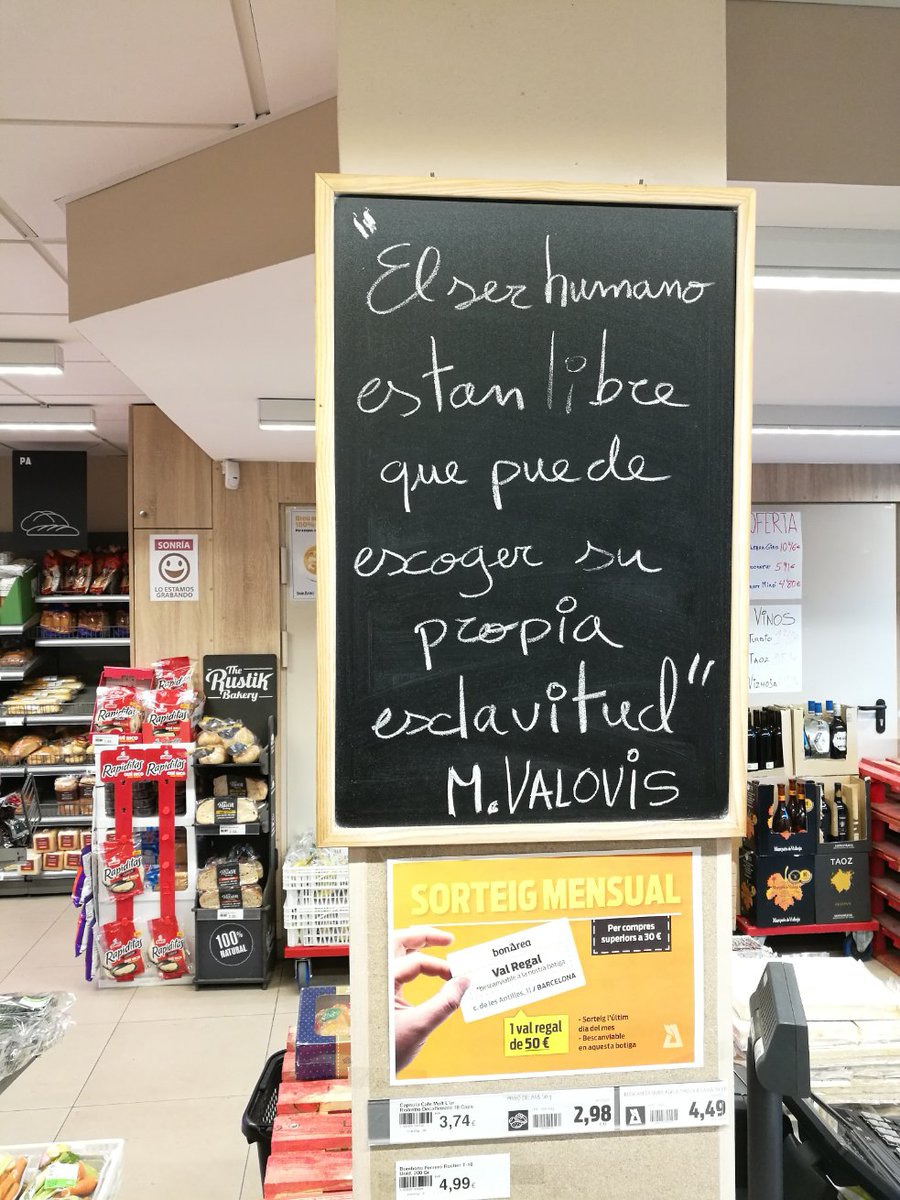 "El ser humano
es tan libre
que puede
escoger su
propia
esclavitud"
M. VALOVIS
PA
SONRÍA
LO ESTAMOS
GRABANDO
The
Rustik
Bakery
Rapiditas
Rapiditas
Rapiditas
Rapiditas
Rapiditas
Rapiditas
100%
NATURAL
OFERTA
VINOS
TAOZ
TAOZ
SORTEIG MENSUAL
Per compres
superiors a 30 €
bonÀrea
Val Regal
*Bescanviable a la nostra botiga
c. de les Antilles, 11 / BARCELONA
1 val regal
de 50 €
- Sorteig l'últim
dia del mes
- Bescanviable
en aquesta botiga
3,74€
2,98
4,49
4,99€